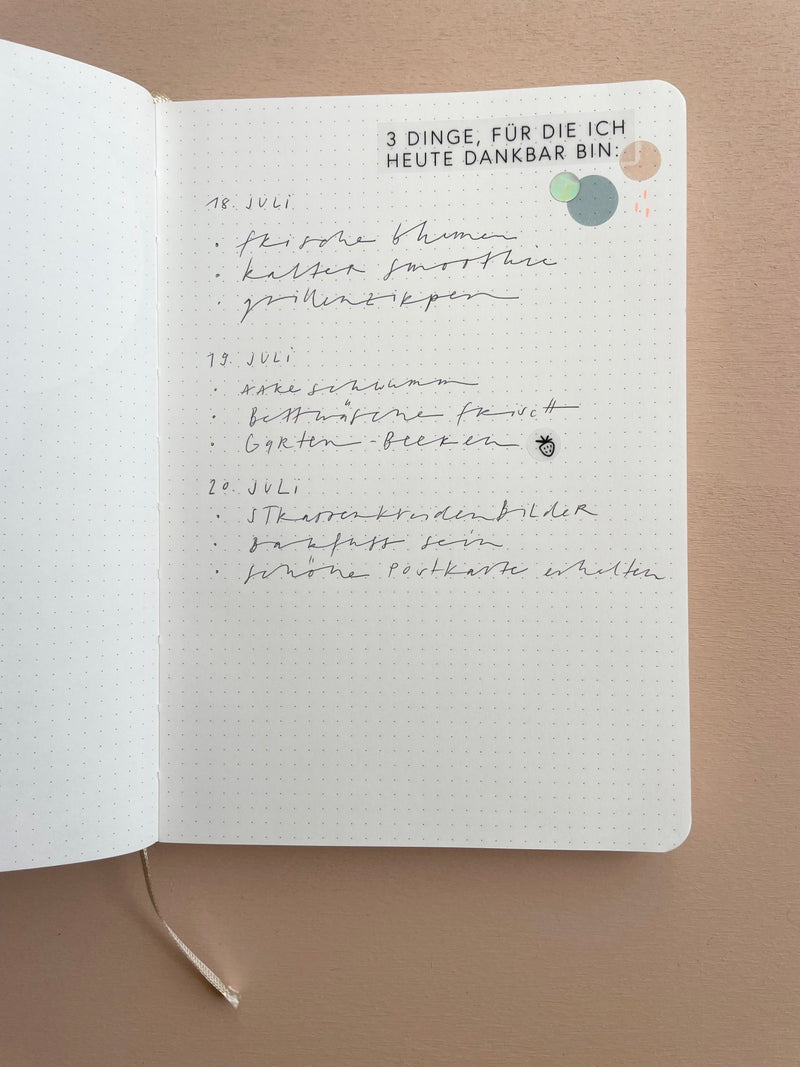 3 DINGE, FÜR DIE ICH
HEUTE DANKBAR BIN:
18. JULI
• frische blumen
• kalter smoothie
• grillenzirpen
19. JULI
• AAReschwumm
• Bettwäsche frisch
• Garten-Beeren
20. JULI
• STRassenkreidenBilder
• Barfuss sein
• schöne Postkarte erhalten